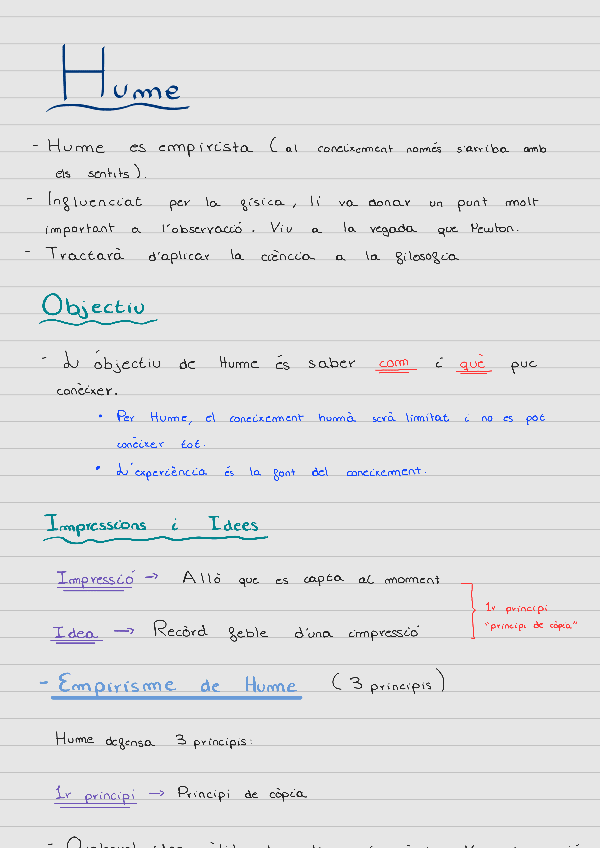 Hume
- Hume es empirista (al coneixement només s'arriba amb
els sentits).
- Influenciat per la física, li va donar un punt molt
important a l'observació. Viu a la vegada que Newton.
- Tractarà d'aplicar la ciència a la filosofia
Objectiu
- L'objectiu de Hume és saber com i què puc
conèixer.
• Per Hume, el coneixement humà serà limitat i no es pot
conèixer tot.
• L'experiència és la font del coneixement.
Impressions i Idees
Impressió → Allò que es capta al moment
1r principi
Idea → Recòrd feble d'una impressió
"principi de còpia"
- Empirisme de Hume (3 principis)
Hume defensa 3 principis:
1r principi → Principi de còpia